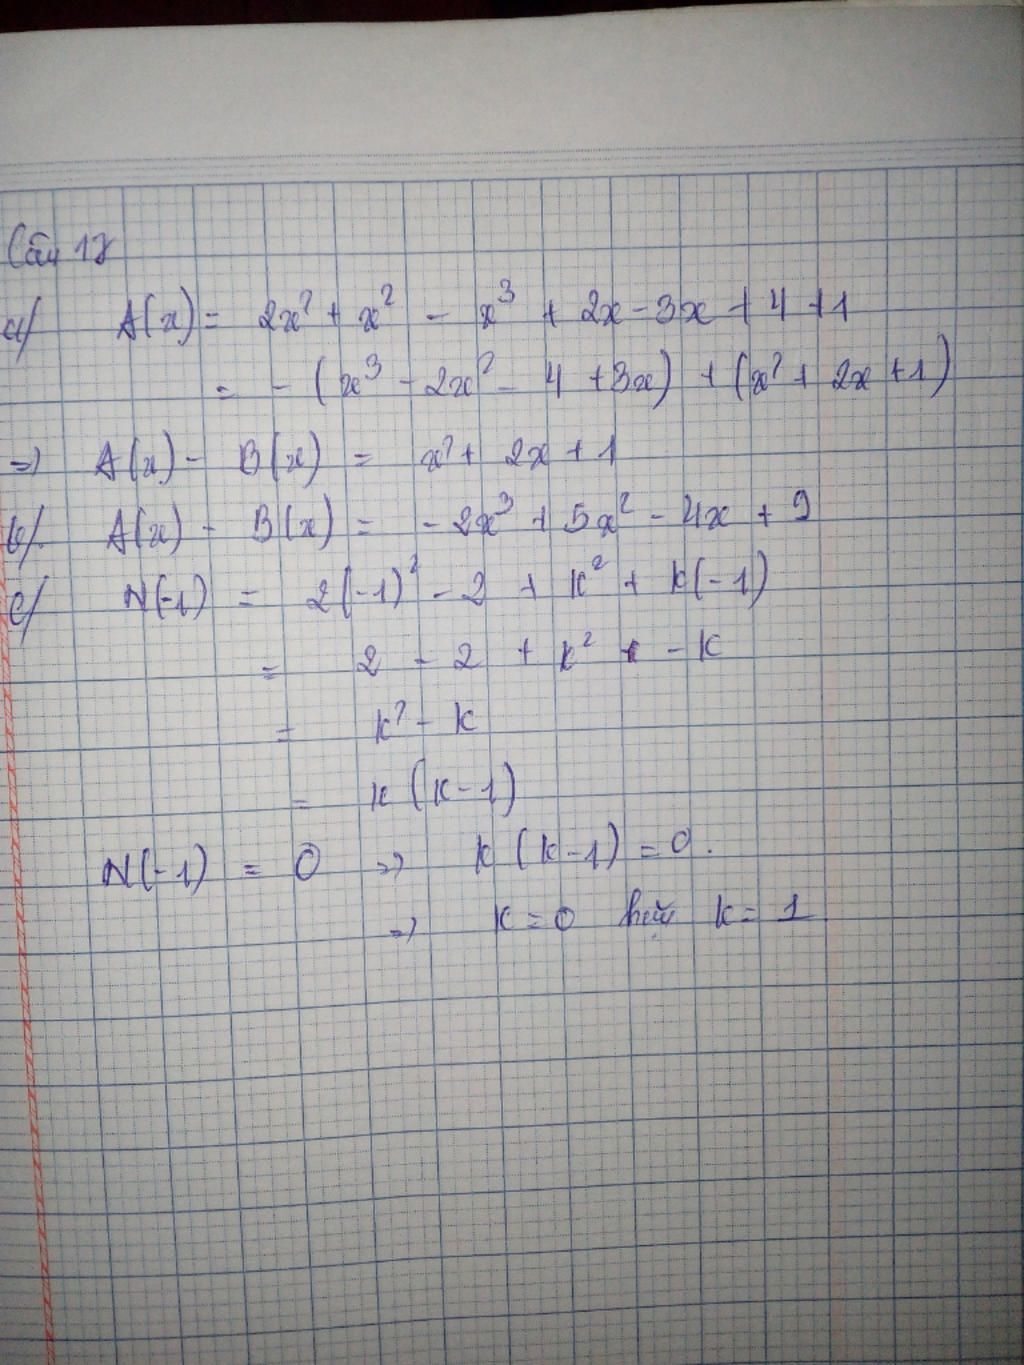 Câu 17
a/ A(x) = 2x² + x² - x³ + 2x - 3x + 4 + 1
= - (x³ - 2x² - 4 + 3x) + (x² + 2x + 1)
=> A(x) - B(x) = x² + 2x + 1
b/. A(x) - B(x) = - 2x³ + 5x² - 4x + 9
c/ N(-1) = 2(-1)² - 2 + k² + k(-1)
= 2 - 2 + k² - k
= k² - k
= k (k-1)
N(-1) = 0 => k (k-1) = 0.
=> k = 0 hoặc k = 1